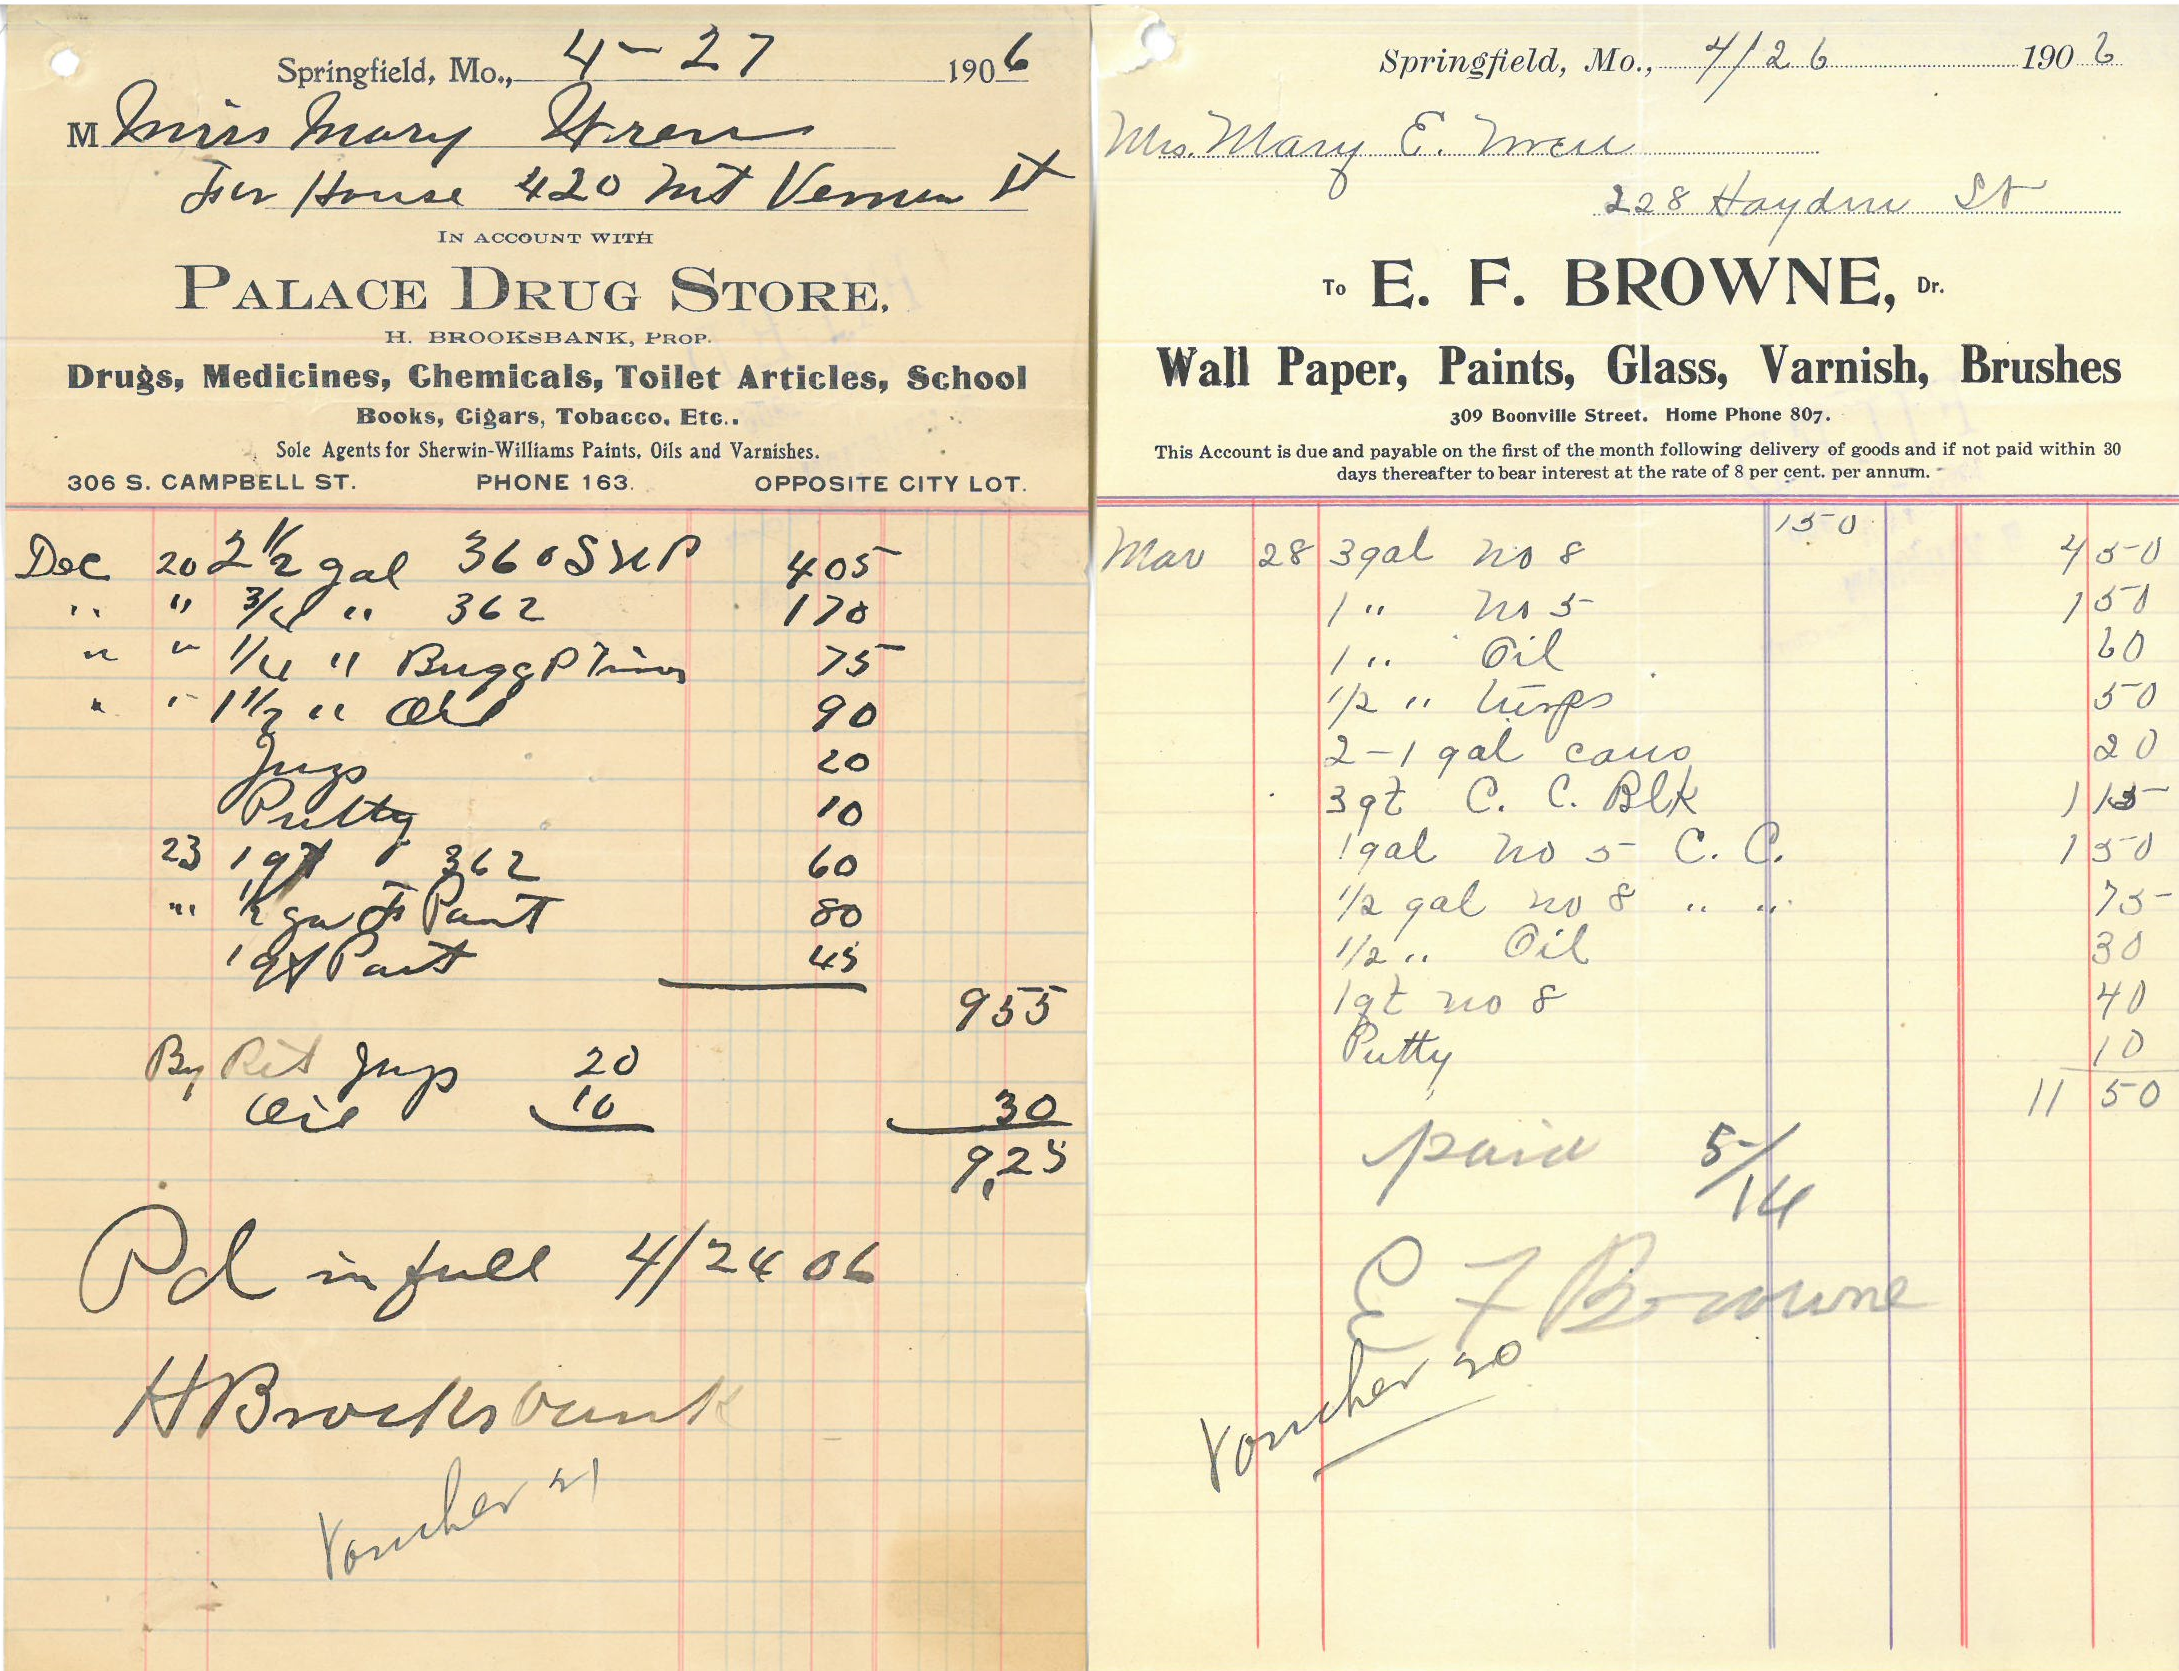 Springfield, Mo., 4-27 1906
M Miss Mary Wren
For House 420 Mt Vernon St
IN ACCOUNT WITH
PALACE DRUG STORE,
H. BROOKSBANK, PROP.
Drugs, Medicines, Chemicals, Toilet Articles, School
Books, Cigars, Tobacco, Etc..
Sole Agents for Sherwin-Williams Paints, Oils and Varnishes.
306 S. CAMPBELL ST. PHONE 163. OPPOSITE CITY LOT.
Dec 20 2 1/2 gal 360 SWP 405
" " 3/4 " 362 170
" " 1/4 " Bugg P 75
" " 1 1/2 " Oil 90
Jugs 20
Putty 10
23 1 qt 362 60
" 1/2 ga Paint 80
1 qt Paint 45
955
By Ret Jugs 20
Oil 10 30
9,25
Pd in full 4/24 06
H Brooksbank
Voucher 21
Springfield, Mo., 4/26 1906
Mrs. Mary E. Wren
228 Hayden St
To E. F. BROWNE, Dr.
Wall Paper, Paints, Glass, Varnish, Brushes
309 Boonville Street. Home Phone 807.
This Account is due and payable on the first of the month following delivery of goods and if not paid within 30
days thereafter to bear interest at the rate of 8 per cent. per annum.
150
Mar 28 3 gal no 8 4 50
1 " no 5 1 50
1 " Oil 60
1/2 " turps 50
2-1 gal cans 20
3 qt C. C. Blk 1 15
1 gal no 5 C. C. 1 50
1/2 gal no 8 " " 75
1/2 " Oil 30
1 qt no 8 40
Putty 10
11 50
paid 5/14
E F Browne
Voucher 20